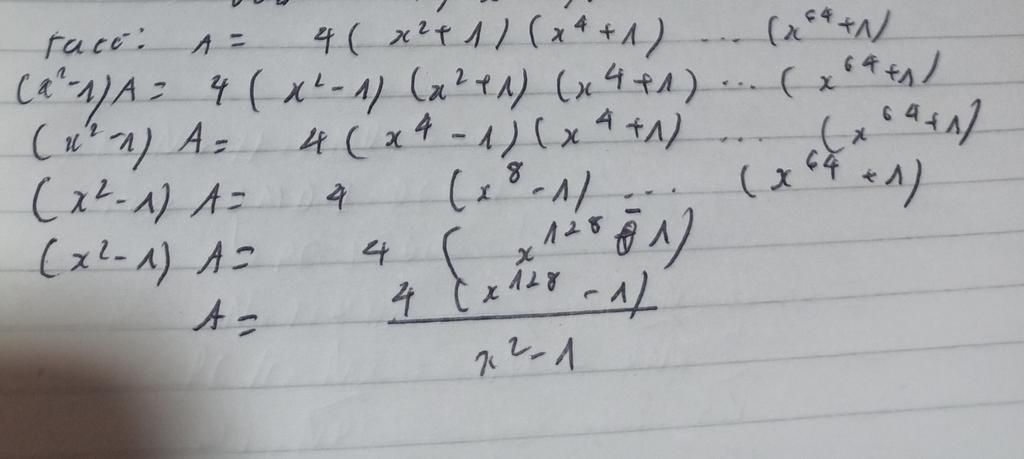 A = 4 ( x² + 1 ) ( x⁴ + 1 ) ... ( x⁶⁴ + 1 )
(x² - 1) A = 4 ( x² - 1 ) ( x² + 1 ) ( x⁴ + 1 ) ... ( x⁶⁴ + 1 )
(x² - 1) A = 4 ( x⁴ - 1 ) ( x⁴ + 1 ) ... ( x⁶⁴ + 1 )
(x² - 1) A = 4 ( x⁸ - 1 ) ... ( x⁶⁴ + 1 )
(x² - 1) A = 4 ( x¹²⁸ - 1 )
A = 4 ( x¹²⁸ - 1 ) / x² - 1